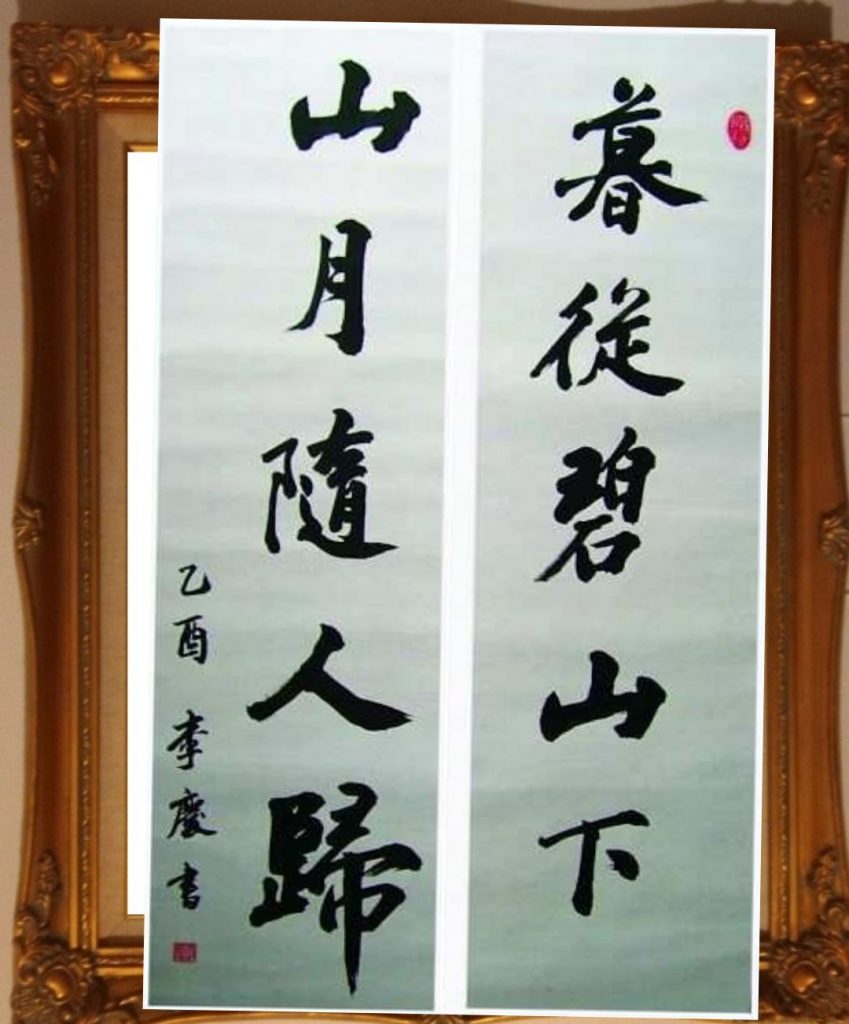 暮從碧山下
山月隨人歸
乙酉 李慶書